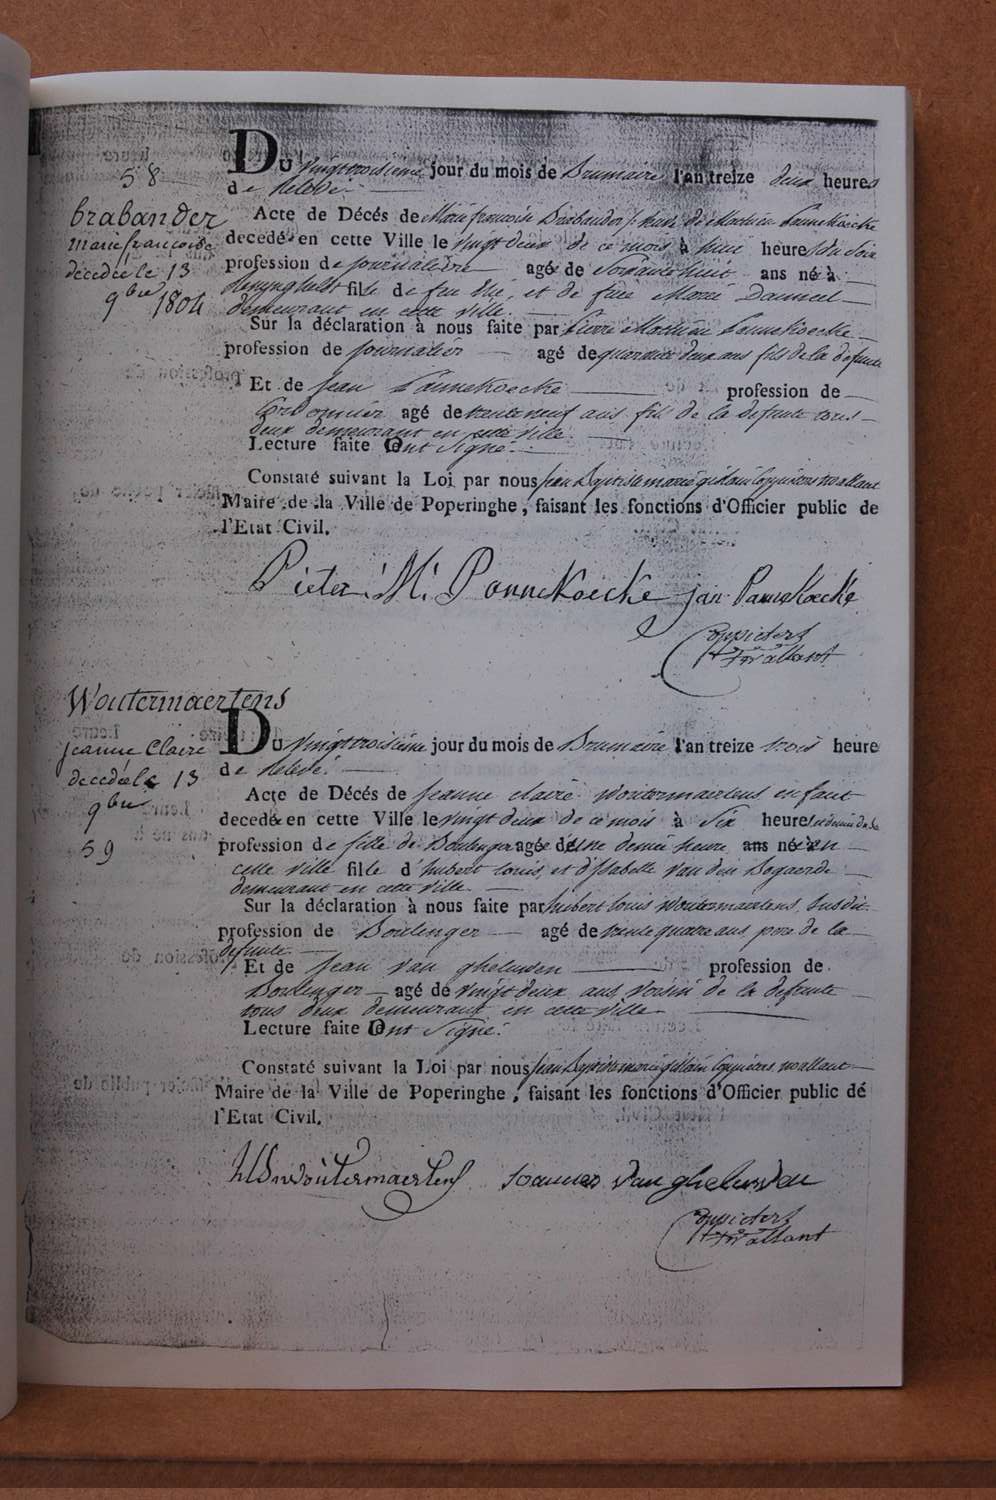 58
brabander
marie françoise
décédée le 13
9bre 1804
Du vingt troisième jour du mois de Brumaire l'an treize deux heures
de Relevé.
Acte de Décés de Marie françoise Brabander, veuve de Mathieu Pannekoecke
decedé en cette Ville le vingt deux de ce mois à huit heures du soir
profession de journalière agé de soixante huit ans né à
Reninghelst fille de feu et de feue Marie
demeurant en cette ville.
Sur la déclaration à nous faite par Pierre Mathieu Pannekoecke
profession de journalier agé de quarante deux ans fils de la défunte
Et de Jean Pannekoecke profession de
Cordonnier agé de trente neuf ans fils de la défunte tous
deux demeurant en cette ville.
Lecture faite Ont Signé.
Constaté suivant la Loi par nous Jean Baptiste marie ghislain Coppieters wallant
Maire de la Ville de Poperinghe, faisant les fonctions d'Officier public de
l'Etat Civil.
Pieter M. Pannekoecke jan Pannekoecke
Coppieters
twallant
Woutermaertens
Jeanne Claire
décédée le 13
9bre
59
Du vingt troisième jour du mois de Brumaire l'an treize trois heure
de Relevé.
Acte de Décés de Jeanne claire woutermaertens enfant
decedé en cette Ville le vingt deux de ce mois à Six heures
profession de fille de Boulenger agée d'une demie heure ans née en
cette ville fille d'hubert louis, et d'Isabelle Van den Bogaerde
demeurant en cette ville.
Sur la déclaration à nous faite par hubert louis woutermaertens, susdit
profession de Boulenger agé de trente quatre ans père de la
défunte
Et de Jean van gheluwen profession de
Boulenger agé de vingt deux ans voisin de la défunte
tous deux demeurant en cette ville.
Lecture faite Ont Signé.
Constaté suivant la Loi par nous Jean Baptiste marie ghislain Coppieters wallant
Maire de la Ville de Poperinghe, faisant les fonctions d'Officier public dé
l'Etat Civil.
woutermaertens Joannes van gheluwen
Coppieters
twallant